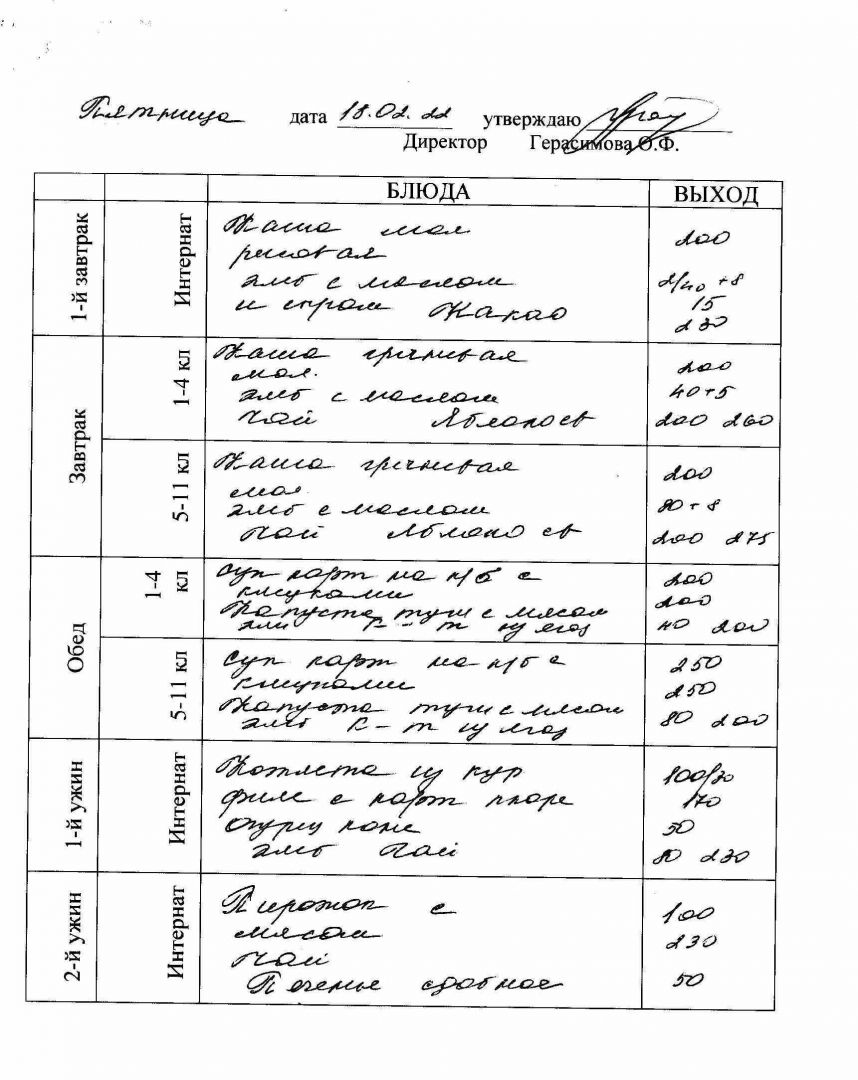 Пятница дата 18.02.22 утверждаю
Директор Герасимова О.Ф.
БЛЮДА ВЫХОД
1-й завтрак Интернат
Каша мол 200
рисовая
хлеб с маслом 2/40 +8
и сыром Какао 15
230
Завтрак
1-4 кл
Каша гречневая 200
мол.
хлеб с маслом 40+5
Чай Яблоко св 200 260
5-11 кл
Каша гречневая 200
мол.
хлеб с маслом 80+8
Чай Яблоко св 200 275
Обед
1-4 кл
Суп карт на к/б с 200
клецками 200
Капуста туш с мясом
хлеб К-т из ягод 40 200
5-11 кл
Суп карт на к/б с 250
клецками 250
Капуста туш с мясом
хлеб К-т из ягод 80 200
1-й ужин Интернат
Котлета из кур 100/30
филе с карт пюре 170
Огурец конс 50
хлеб Чай 80 230
2-й ужин Интернат
Пирожок с 100
мясом 230
Чай
Печенье сдобное 50